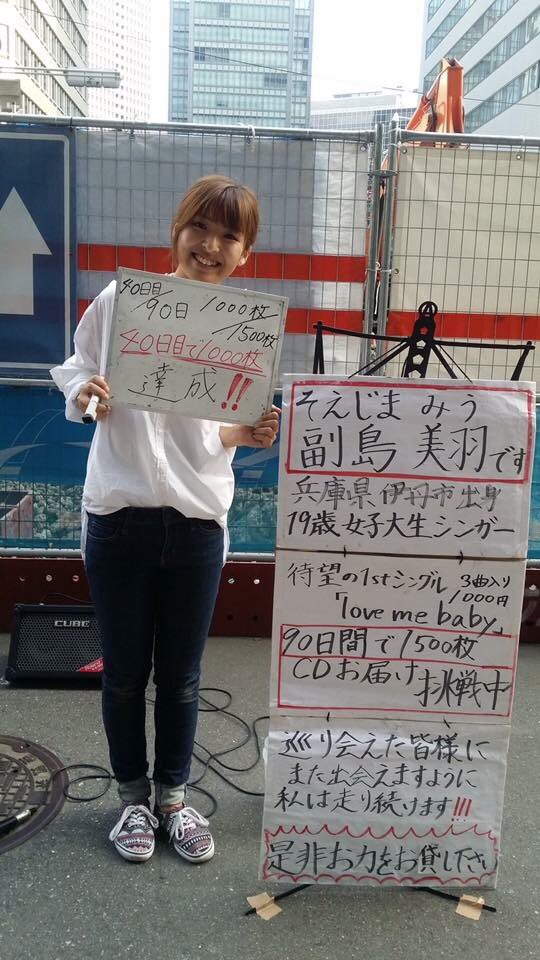 40日目
/90日 1000枚
/1500枚
40日目で1000枚
達成!!
そえじま みう
副島 美羽です
兵庫県伊丹市出身
19歳女子大生シンガー
待望の1stシングル 3曲入り
1000円
「love me baby」
90日間で1500枚
CDお届け挑戦中
巡り会えた皆様に
また出会えますように
私は走り続けます!!!
是非お力をお貸し下さい
CUBE